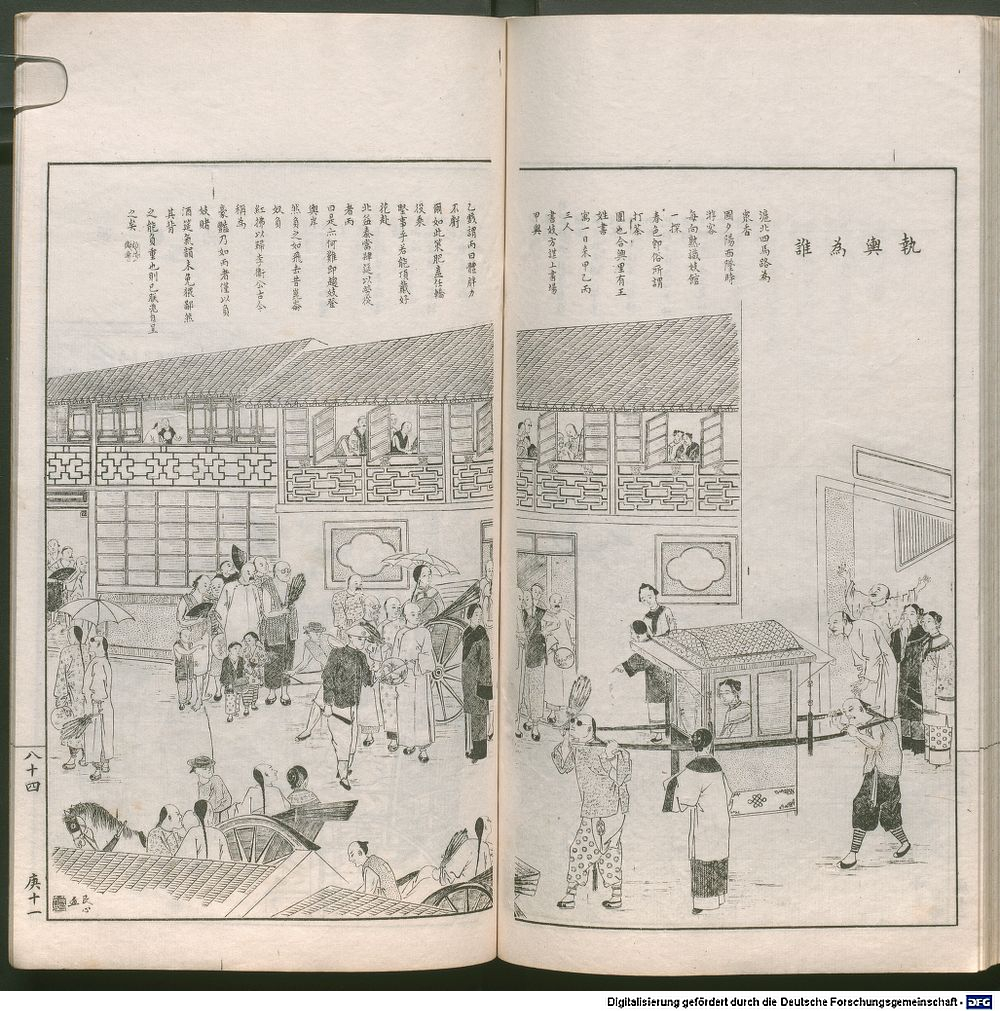 執輿為誰
滬北四馬路為
眾香
國夕陽西墜時
游客
每向熟識妓館
一探
春色即俗所謂
打茶
圍也合興里有王
姓書
寓一日来甲乙丙
三人
書妓方謀上書場
甲與
乙戲謂丙曰體胖力
不虧
爾如此策肥盍任轎
後乘
堅事乎若能頂戴好
花赴
北益泰當肆筵以勞從
者丙
曰是亦何難即趨妓登
輿岸
然負之如飛去昔崑崙
奴負
紅拂以歸李衛公古今
稱為
豪乃如丙者僅以負
妓賭
酒筵氣韻未免猥鄙然
其背
之能負重也則已朕兆自呈
之矣
八十四
庚十一
Digitalisierung gefördert durch die Deutsche Forschungsgemeinschaft - DFG